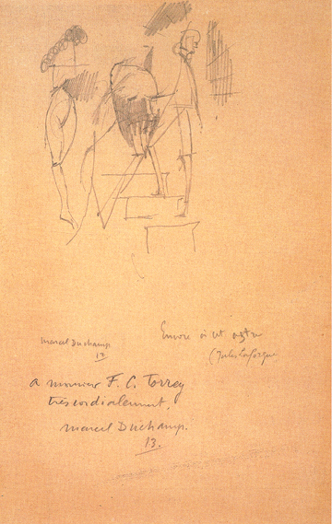 Marcel Duchamp
12
Encore à cet astre
(Jules Laforgue
a monsieur F. C. Torrey
très cordialement.
Marcel Duchamp.
13.